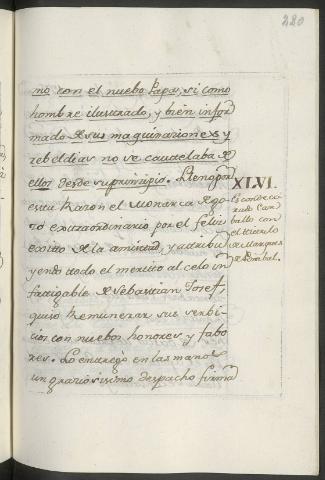 280
mo con el nuebo Papa, si como
hombre ilustrado, y bien infor
mado de sus maquinaciones y
rebeldias no se cautelaba de
ellos desde su prinzipio. Lleno por
esta razon el Monarca de go
zo extraordinario por el feliz
exsitto de la amistad, y atribu
yendo ttodo el meritto al celo in
fattigable de Sebastian Josef,
quiso Remunerar sus serbi
cios con nuebos honores y fabo
res. Lo entrego en las manos
un graziosissimo despacho firma
XLVI.
Es condecora
do Car
ballo con
el titulo
de Marques
de Pombal.